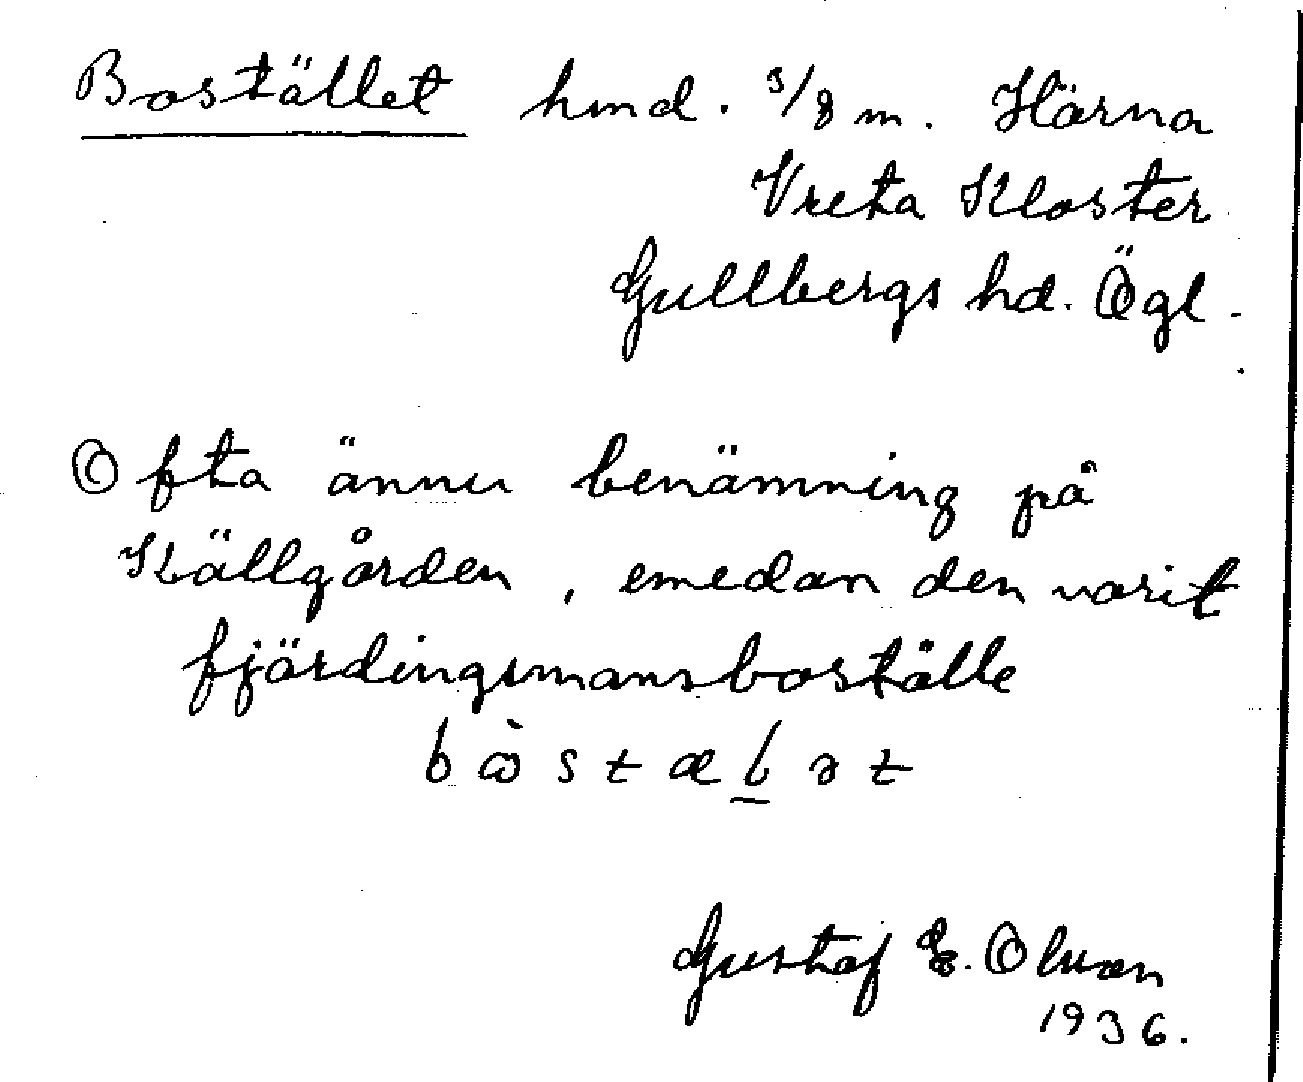 Bostället hmd. 3/8 m. Härna
Vreta Kloster
Gullbergs hd. Ögl.
Ofta ännu benämning på
Källgården, emedan den varit
fjärdingsmansboställe
Gustaf E. Olsson
1936.